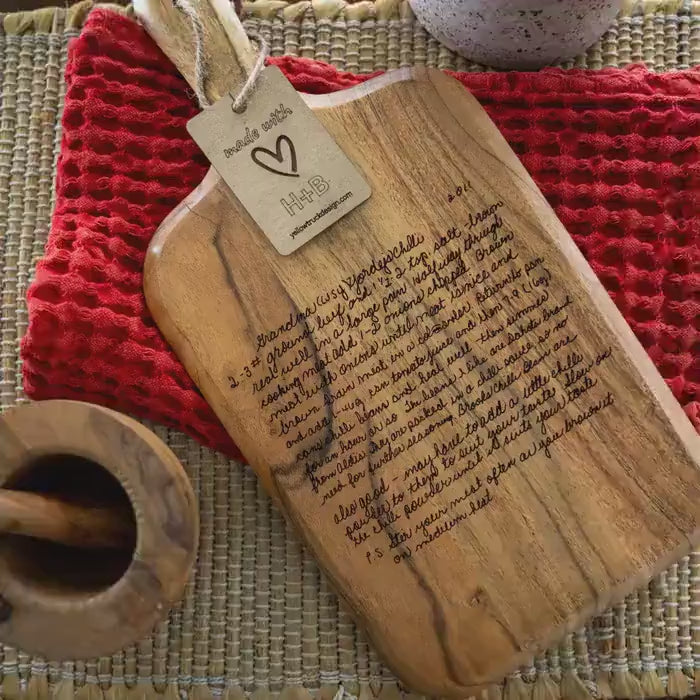 made with
H+B
yellowtruckdesign.com
2011
Grandma Chili
2-3# ground beef and 1-2 tsp salt, brown
real well in a large pan. Halfway through
cooking meat add 1-2 onions chopped. Brown
meat with onions until meat is nice and
brown. Drain meat in a colander. Return to pan
and add 46 oz can tomato juice and then
cans chili beans and heat well - then simmer
for an hour or so. The beans I like are brand
from Aldis. They are packed in a chili sauce so no
need for further seasoning. Brooks Chili Beans are
also good - may have to add a little chili
powder to them to suit your taste. Go slow on
the chili powder until it suits your taste
P.S. Stir your meat often as you brown it
on medium heat